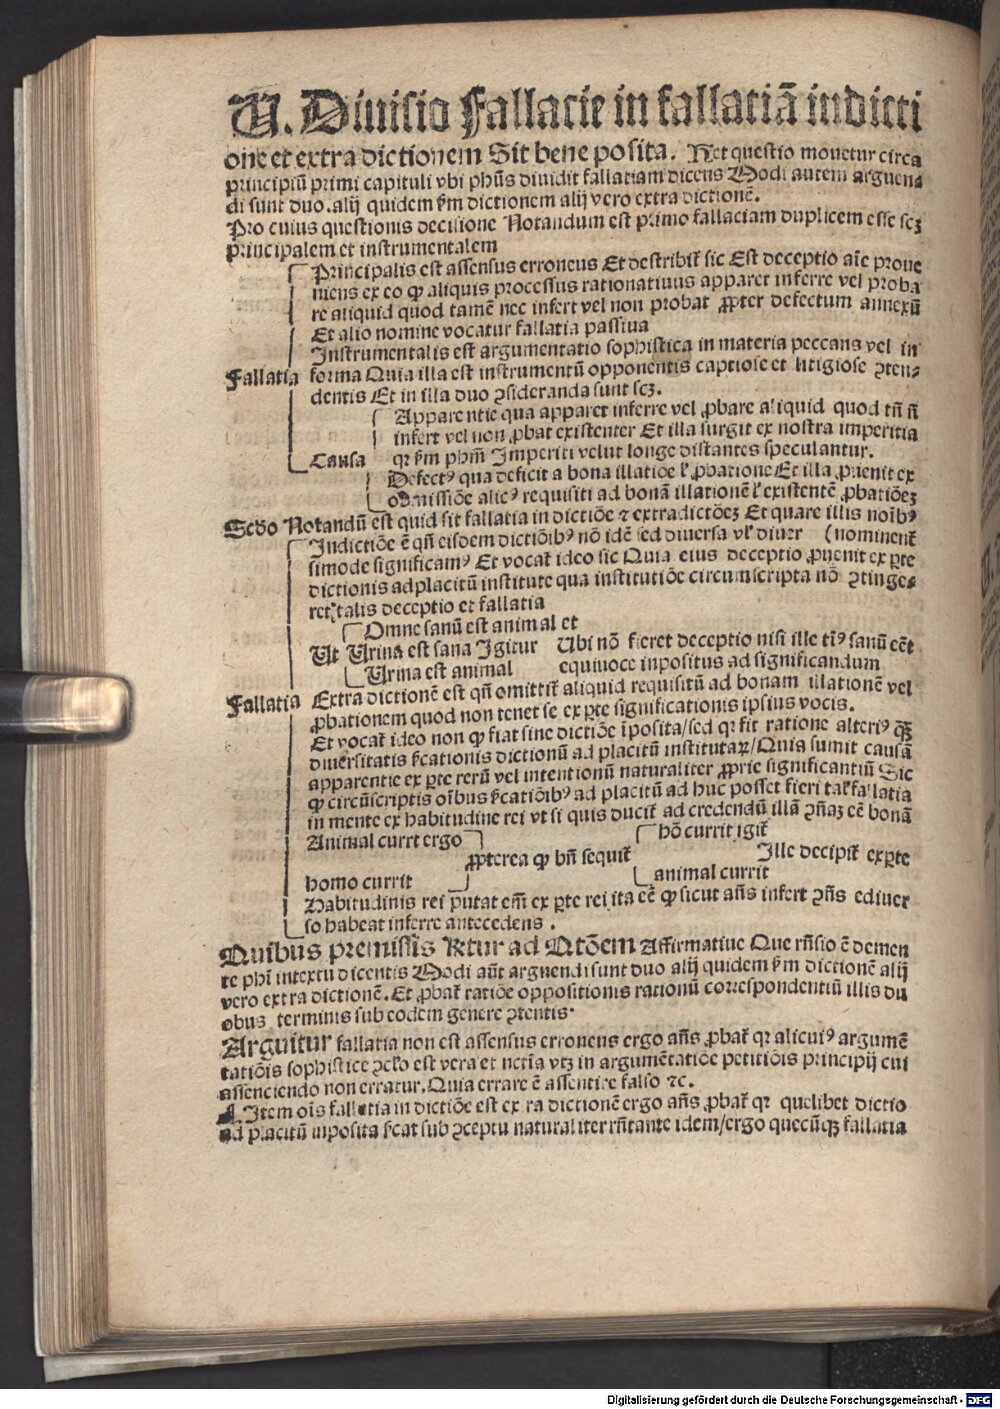 U. Diuisio Fallacie in fallatiā in dicti
one et extra dictionem Sit bene posita. Het questio mouetur circa
principiū primi capituli vbi phūs diuidit fallatiam dicens Modi autem arguen
di sunt duo. alij quidem ẜm dictionem alij vero extra dictionē.
Pro cuius questionis decisione Notandum est primo fallaciam duplicem esse scꝫ
principalem et instrumentalem
Principalis est assensus erroneus Et describit̄ sic Est deceptio aīe proue
niens ex eo ꝙ aliquis processus rationatiuus apparet inferre vel proba
re aliquid quod tamē nec infert vel non probat ꝓpter defectum annexū
Et alio nomine vocatur fallatia passiua
Instrumentalis est argumentatio sophistica in materia peccans vel in
Fallatia forma Quia illa est instrumentū opponentis captiose et litigiose ꝯten⸗
dentis Et in illa duo ꝯsideranda sunt scꝫ.
Apparentie qua apparet inferre vel ꝓbare aliquid quod tn̄ nō
infert vel non ꝓbat existenter Et illa surgit ex nostra imperitia
Causa qꝛ ẜm phm̄ Imperiti velut longe distantes speculantur.
Defectꝰ qua deficit a bona illatiōe ł ꝓbatione Et illa ꝓuenit ex
obmissiōe alicꝰ requisiti ad bonā illationē ł existentē ꝓbatiōeꝫ
Secūdo Notandū est quid sit fallatia in dictiōe ⁊ extra dictōeꝫ Et quare illis noībꝰ
In dictiōe ē qn̄ eisdem dictiōibꝰ nō idē sed diuersa vł diuer (nominent̄
simode significamꝰ Et vocat̄ ideo sic Quia eius deceptio ꝓuenit ex ꝑte
dictionis ad placitū institute qua institutiōe circumscripta nō ꝯtinge⸗
ret talis deceptio et fallatia
Omne sanū est animal et
Ut Urina est sana Igitur Ubi nō fieret deceptio nisi ille tīꝰ sanū eēt
Urina est animal equiuoce inpositus ad significandum
Fallatia Extra dictionē est qn̄ omittit̄ aliquid requisitū ad bonam illationē vel
ꝓbationem quod non tenet se ex ꝑte significationis ipsius vocis.
Et vocat̄ ideo non ꝙ fiat sine dictiōe īposita/sed qꝛ fit ratione alteriꝰ qꝫ
diuersitatis ẜicationis dictionū ad placitū institutaꝝ/Quia sumit causā
apparentie ex ꝑte rerū vel intentionū naturaliter ꝓprie significantiū Sic
ꝙ circūscriptis oībus ẜicatiōibꝰ ad placitū ad huc posset fieri tal' fallatia
in mente ex habitudine rei vt si quis ducit̄ ad credendū illā ꝯn̄aꝫ eē bonā
Animal currt ergo hō currit igit̄
ꝓpterea ꝙ bn̄ sequit̄ Ille decipit̄ ex ꝑte
homo currit animal currit
Habitudinis rei putat em̄ ex ꝑte rei ita eē ꝙ sicut an̄s infert ꝯn̄s ediuer
so habeat inferre antecedens.
Quibus premissis Rn̄tur ad Qtōem Affirmatiue Que rn̄sio ē de men
te phi in textu dicentis Modi aūt arguendi sunt duo alij quidem ẜm dictionē alij
vero extra dictionē. Et ꝓbat̄ ratiōe oppositionis rationū correspondentiū illis du
obus terminis sub eodem genere ꝯtentis.
Arguitur fallatia non est assensus erroneus ergo an̄s ꝓbat̄ qꝛ alicuiꝰ argumē
tatiōis sophistice ꝯclō est vera et necīa vtꝫ in argumētatiōe petitiōis principij cui
assenciendo non erratur. Quia errare ē assentire falso ⁊c.
Item oīs fallatia in dictiōe est extra dictionē ergo an̄s ꝓbat̄ qꝛ quelibet dictio
ad placitū inposita ẜicat sub ꝯceptu naturaliter rn̄tante idem/ergo quecūqꝫ fallatia
Digitalisierung gefördert durch die Deutsche Forschungsgemeinschaft - DFG